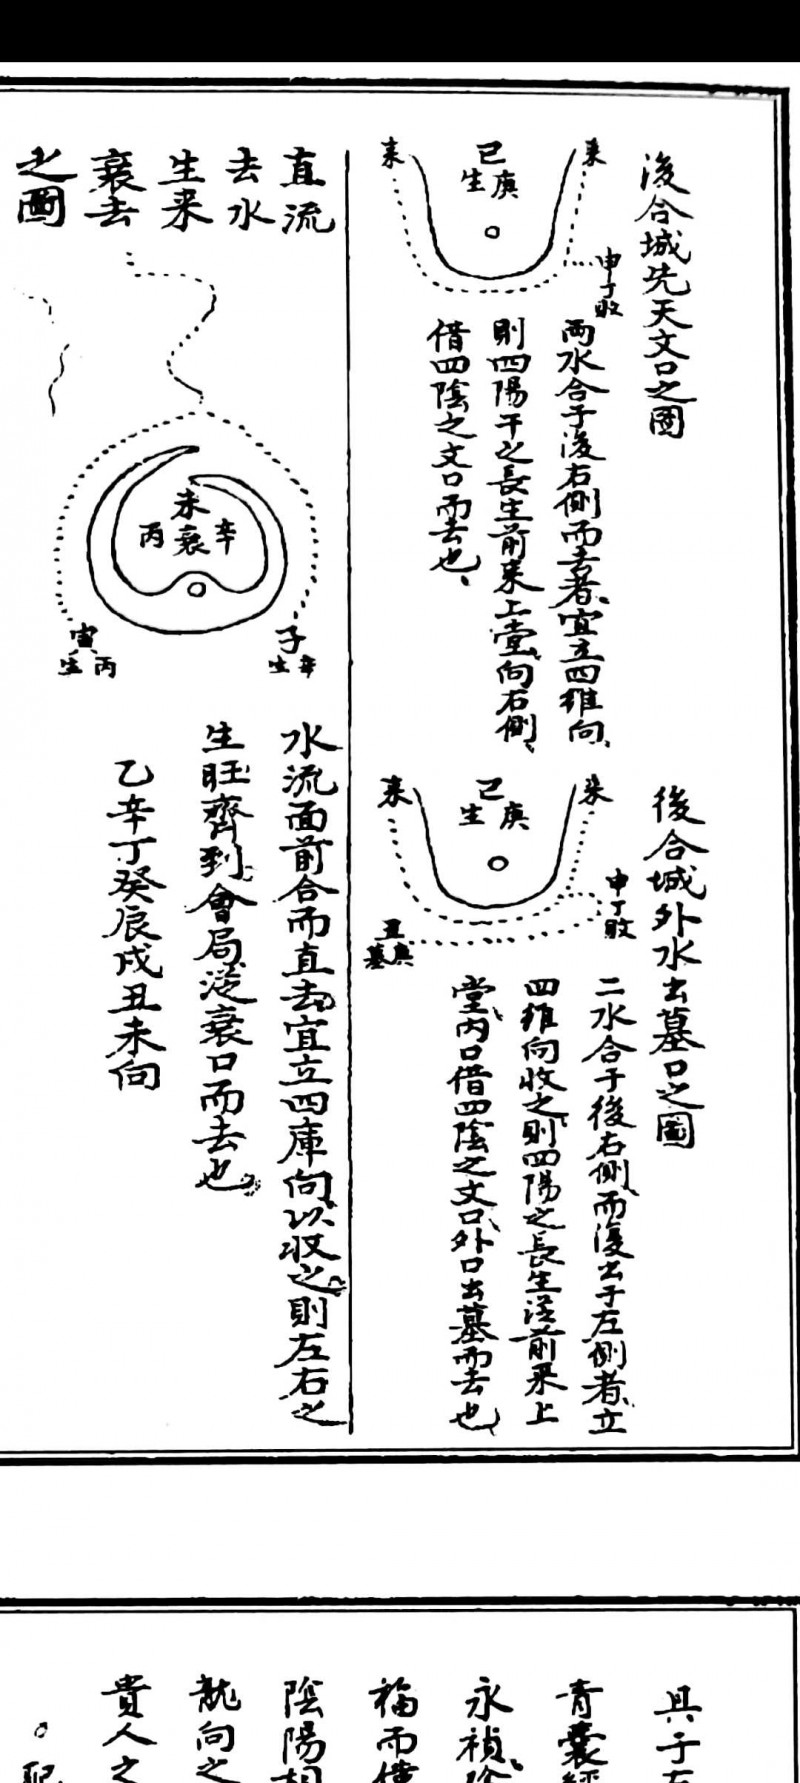 後合城先天文口之圖
來
巳
庚
生
來
申丁敗
兩水合于後右側而去者、宜立四維向、
則四陽干之長生前來上堂、向右側、
借四陰之文口而去也、
後合城外水出墓口之圖
來
巳
庚
生
來
申丁敗
丑庚墓
二水合于後右側、而復出于左側者、立
四維向收之、則四陽之長生從前來上
堂、內口借四陰之文口、外口出墓而去也
直流
去水
生來
衰去
之圖
未
丙
衰
辛
寅丙生
子辛生
水流面前合而直去、宜立四庫向以收之、則左右之
生旺齊到、會局從衰口而去也
乙辛丁癸辰戌丑未向
具于左
青囊經
永禎
福而
陰陽
龍向之
貴人之